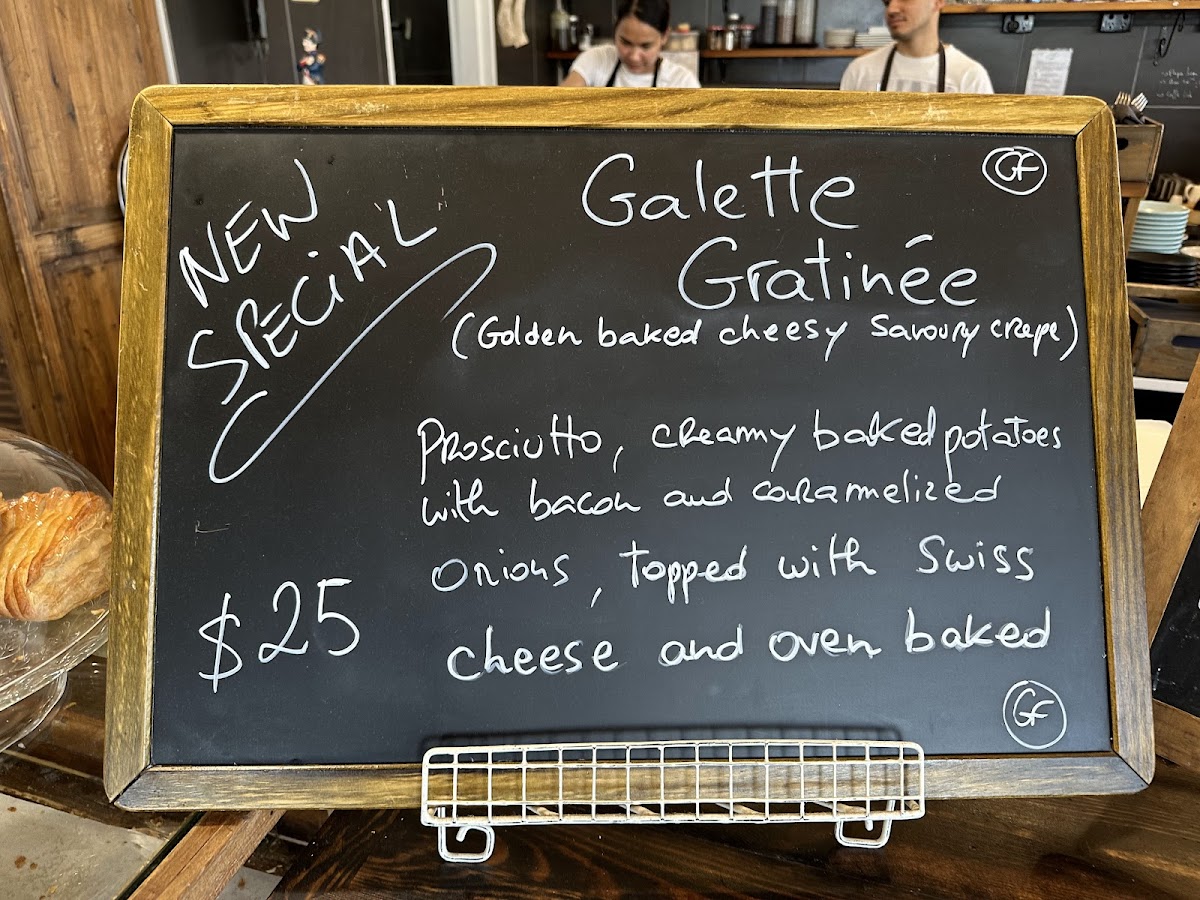 NEW
SPECIAL
Galette
GF
Gratinée
(Golden baked cheesy savoury crepe)
Prosciutto, creamy baked potatoes
with bacon and caramelized
onions, topped with Swiss
cheese and oven baked
$25
GF